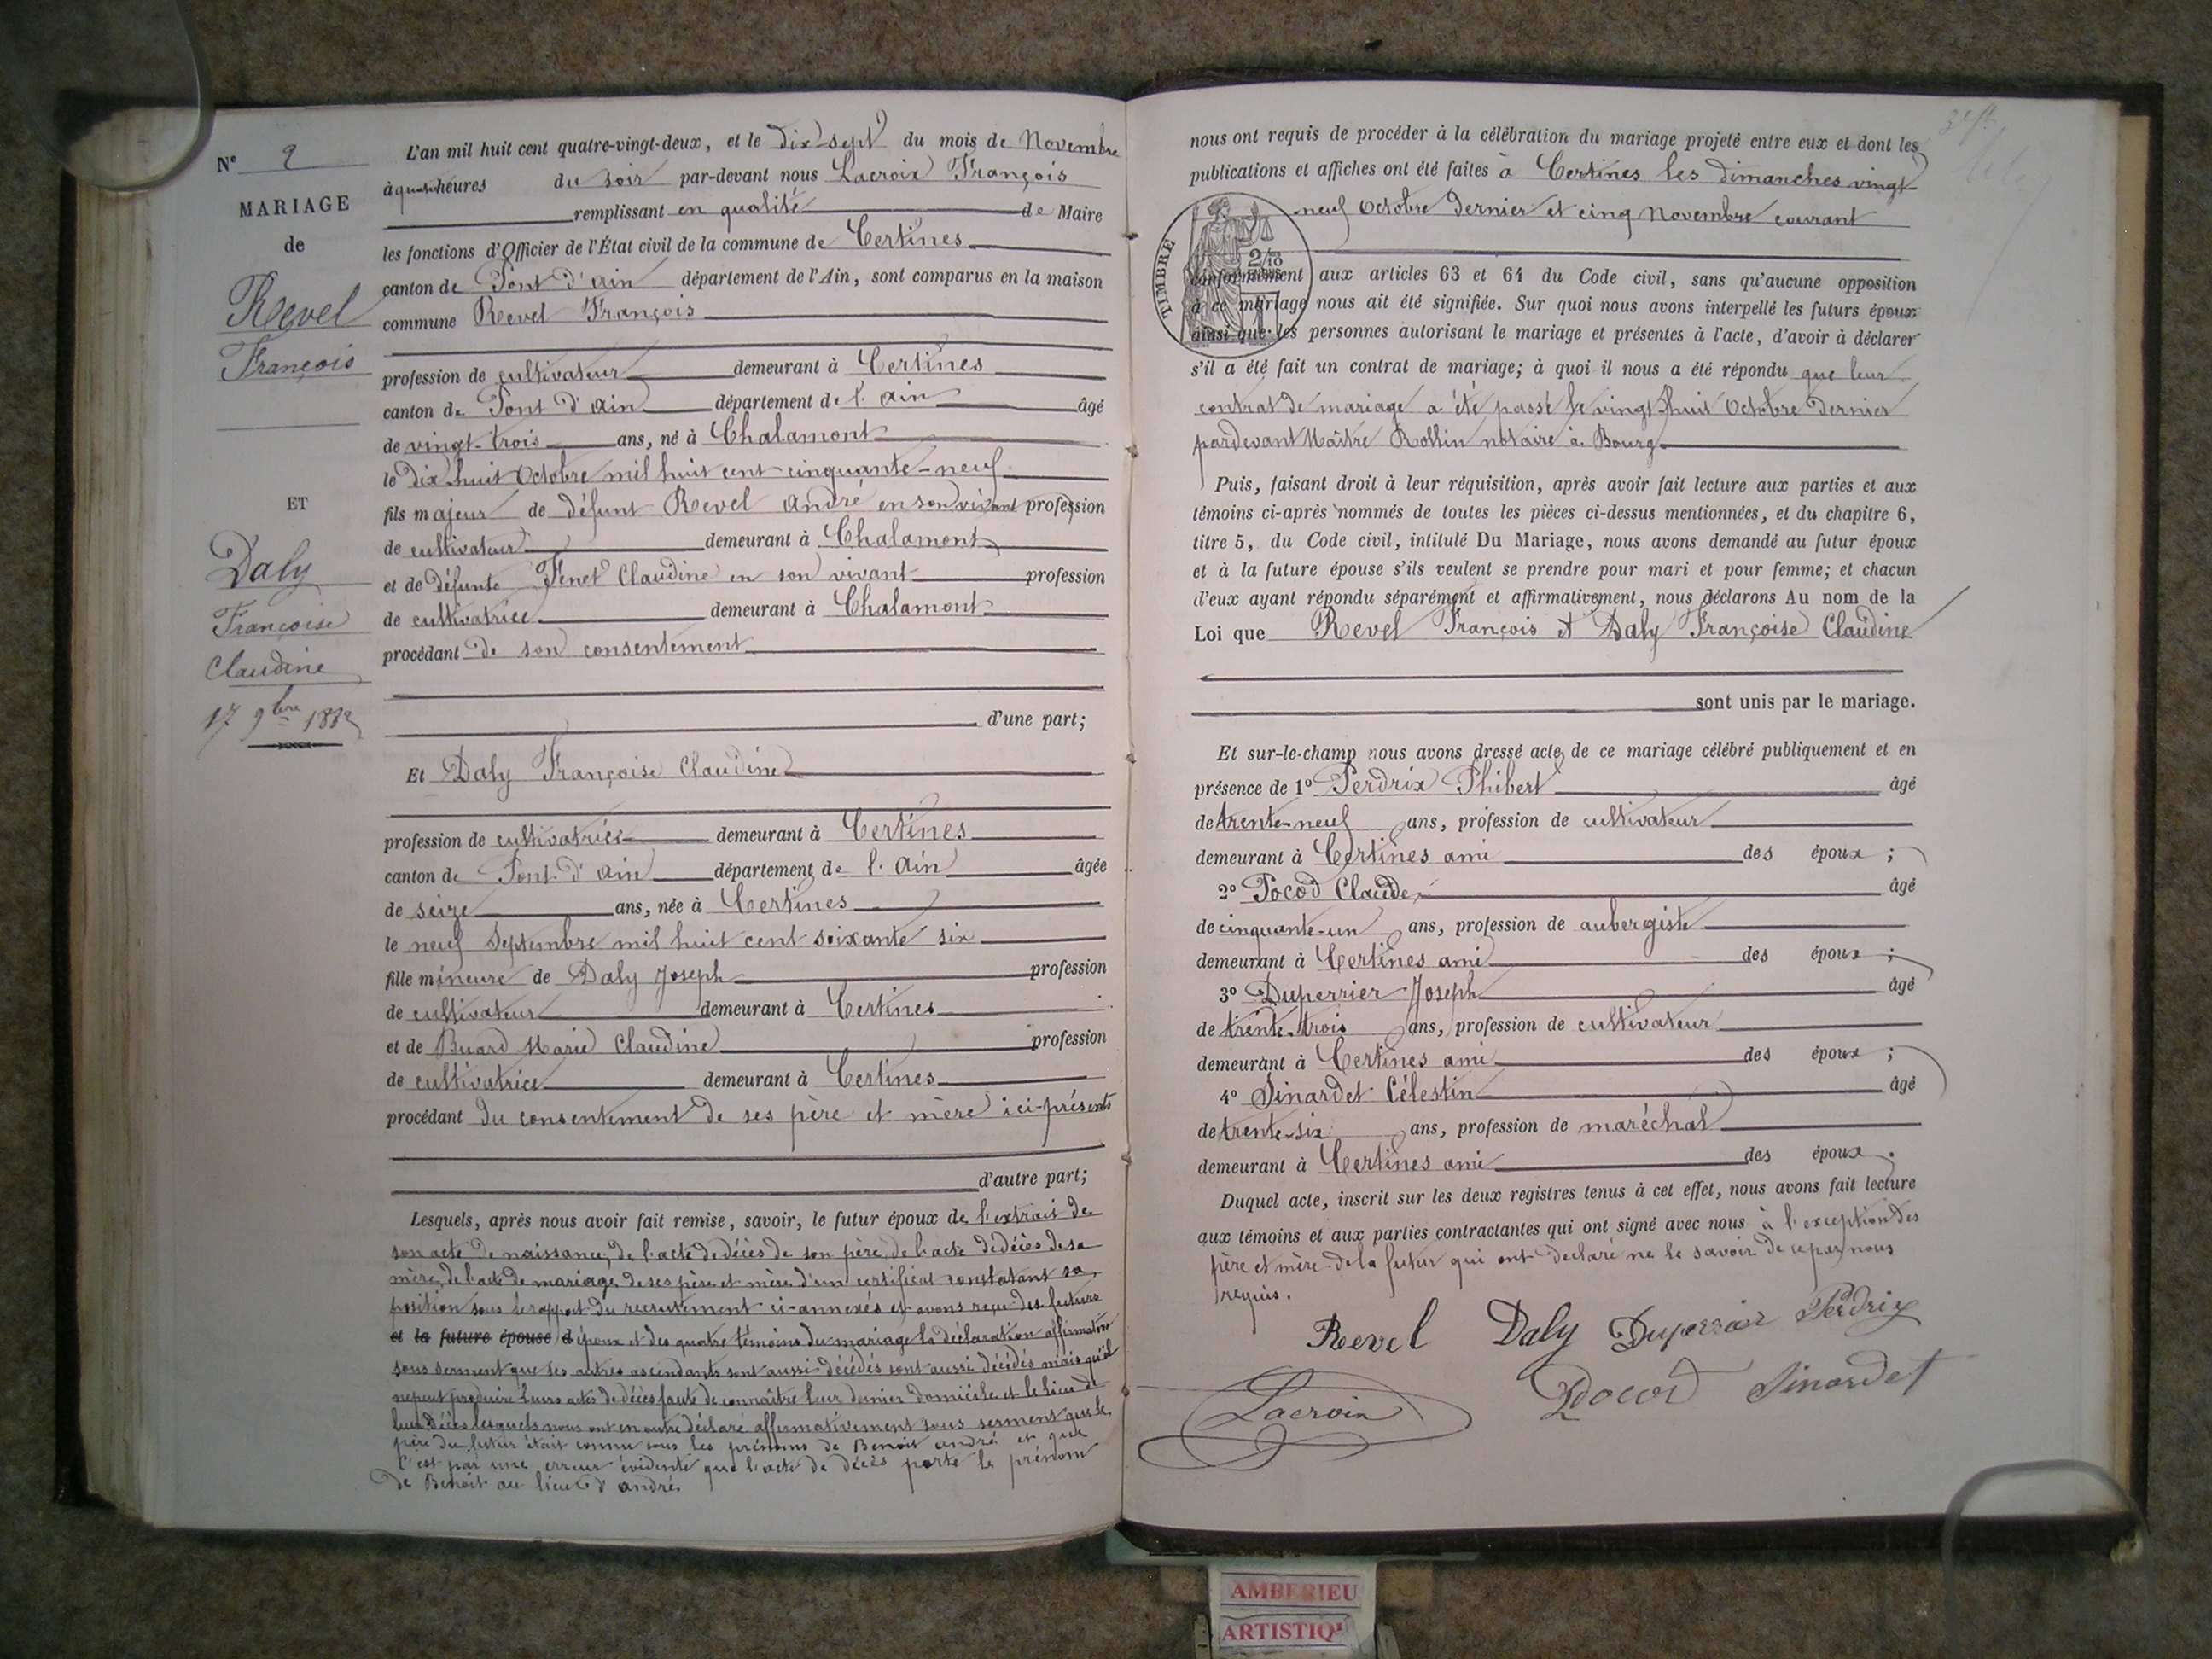 N° 9
MARIAGE
de
Revel
François
ET
Daly
Françoise
Claudine
17 9bre 1882
L'an mil huit cent quatre-vingt-deux, et le dix sept du mois de Novembre
à quatre heures du soir par-devant nous Lacroix François
remplissant en qualité de Maire
les fonctions d'Officier de l'État civil de la commune de Certines
canton de Pont d'ain département de l'Ain, sont comparus en la maison
commune Revel François
profession de cultivateur demeurant à Certines
canton de Pont d'ain département de l'ain âgé
de vingt-trois ans, né à Chalamont
le dix huit Octobre mil huit cent cinquante-neuf
fils majeur de défunt Revel André en son vivant profession
de cultivateur demeurant à Chalamont
et de défunte Fenet Claudine en son vivant profession
de cultivatrice demeurant à Chalamont
procédant de son consentement
d'une part;
Et Daly Françoise Claudine
profession de cultivatrice demeurant à Certines
canton de Pont-d'ain département de l'ain âgée
de seize ans, née à Certines
le neuf Septembre mil huit cent soixante six
fille mineure de Daly Joseph profession
de cultivateur demeurant à Certines
et de Buard Marie Claudine profession
de cultivatrice demeurant à Certines
procédant du consentement de ses père et mère ici-présents
d'autre part;
Lesquels, après nous avoir fait remise, savoir, le futur époux de l'extrait de
son acte de naissance, de l'acte de décès de son père, de l'acte de décès de sa
mère, de l'acte de mariage de ses père et mère, d'un certificat constatant sa
position sous le rapport du recrutement ci-annexés et avons reçu des futurs
et la future épouse d époux et des quatre témoins du mariage la déclaration affirmative
sous serment que les autres ascendants sont aussi décédés sont aussi décédés mais qu'il
ne peut produire leurs actes de décès faute de connaître leur dernier domicile et le lieu de
leur décès lesquels nous ont en outre déclaré affirmativement sous serment que le
père du futur était connu sous les prénoms de Benoit andré et que
c'est par une erreur évidente que l'acte de décès porte le prénom
de Benoit au lieu d'andré.
nous ont requis de procéder à la célébration du mariage projeté entre eux et dont les
publications et affiches ont été faites à Certines les dimanches vingt
neuf Octobre dernier et cinq Novembre courant
TIMBRE
2/10
conformément aux articles 63 et 64 du Code civil, sans qu'aucune opposition
à ce mariage nous ait été signifiée. Sur quoi nous avons interpellé les futurs époux
ainsi que les personnes autorisant le mariage et présentes à l'acte, d'avoir à déclarer
s'il a été fait un contrat de mariage; à quoi il nous a été répondu que leur
contrat de mariage a été passé le vingt-huit Octobre dernier
pardevant Maître Rollin notaire à Bourg
Puis, faisant droit à leur réquisition, après avoir fait lecture aux parties et aux
témoins ci-après nommés de toutes les pièces ci-dessus mentionnées, et du chapitre 6,
titre 5, du Code civil, intitulé Du Mariage, nous avons demandé au futur époux
et à la future épouse s'ils veulent se prendre pour mari et pour femme; et chacun
d'eux ayant répondu séparément et affirmativement, nous déclarons Au nom de la
Loi que Revel François et Daly Françoise Claudine
sont unis par le mariage.
Et sur-le-champ nous avons dressé acte de ce mariage célébré publiquement et en
présence de 1° Perdrix Phibert âgé
de trente-neuf ans, profession de cultivateur
demeurant à Certines ami des époux ;
2° Pocod Claude âgé
de cinquante-un ans, profession de aubergiste
demeurant à Certines ami des époux ;
3° Duperrier Joseph âgé
de trente-trois ans, profession de cultivateur
demeurant à Certines ami des époux ;
4° Sinardet Célestin âgé
de trente-six ans, profession de maréchal
demeurant à Certines ami des époux.
Duquel acte, inscrit sur les deux registres tenus à cet effet, nous avons fait lecture
aux témoins et aux parties contractantes qui ont signé avec nous à l'exception des
père et mère de la futur qui ont déclaré ne le savoir de ce par nous
requis.
Revel Daly Duperrier Perdrix
Lacroix Pocod Sinardet
AMBERIEU
ARTISTIQ